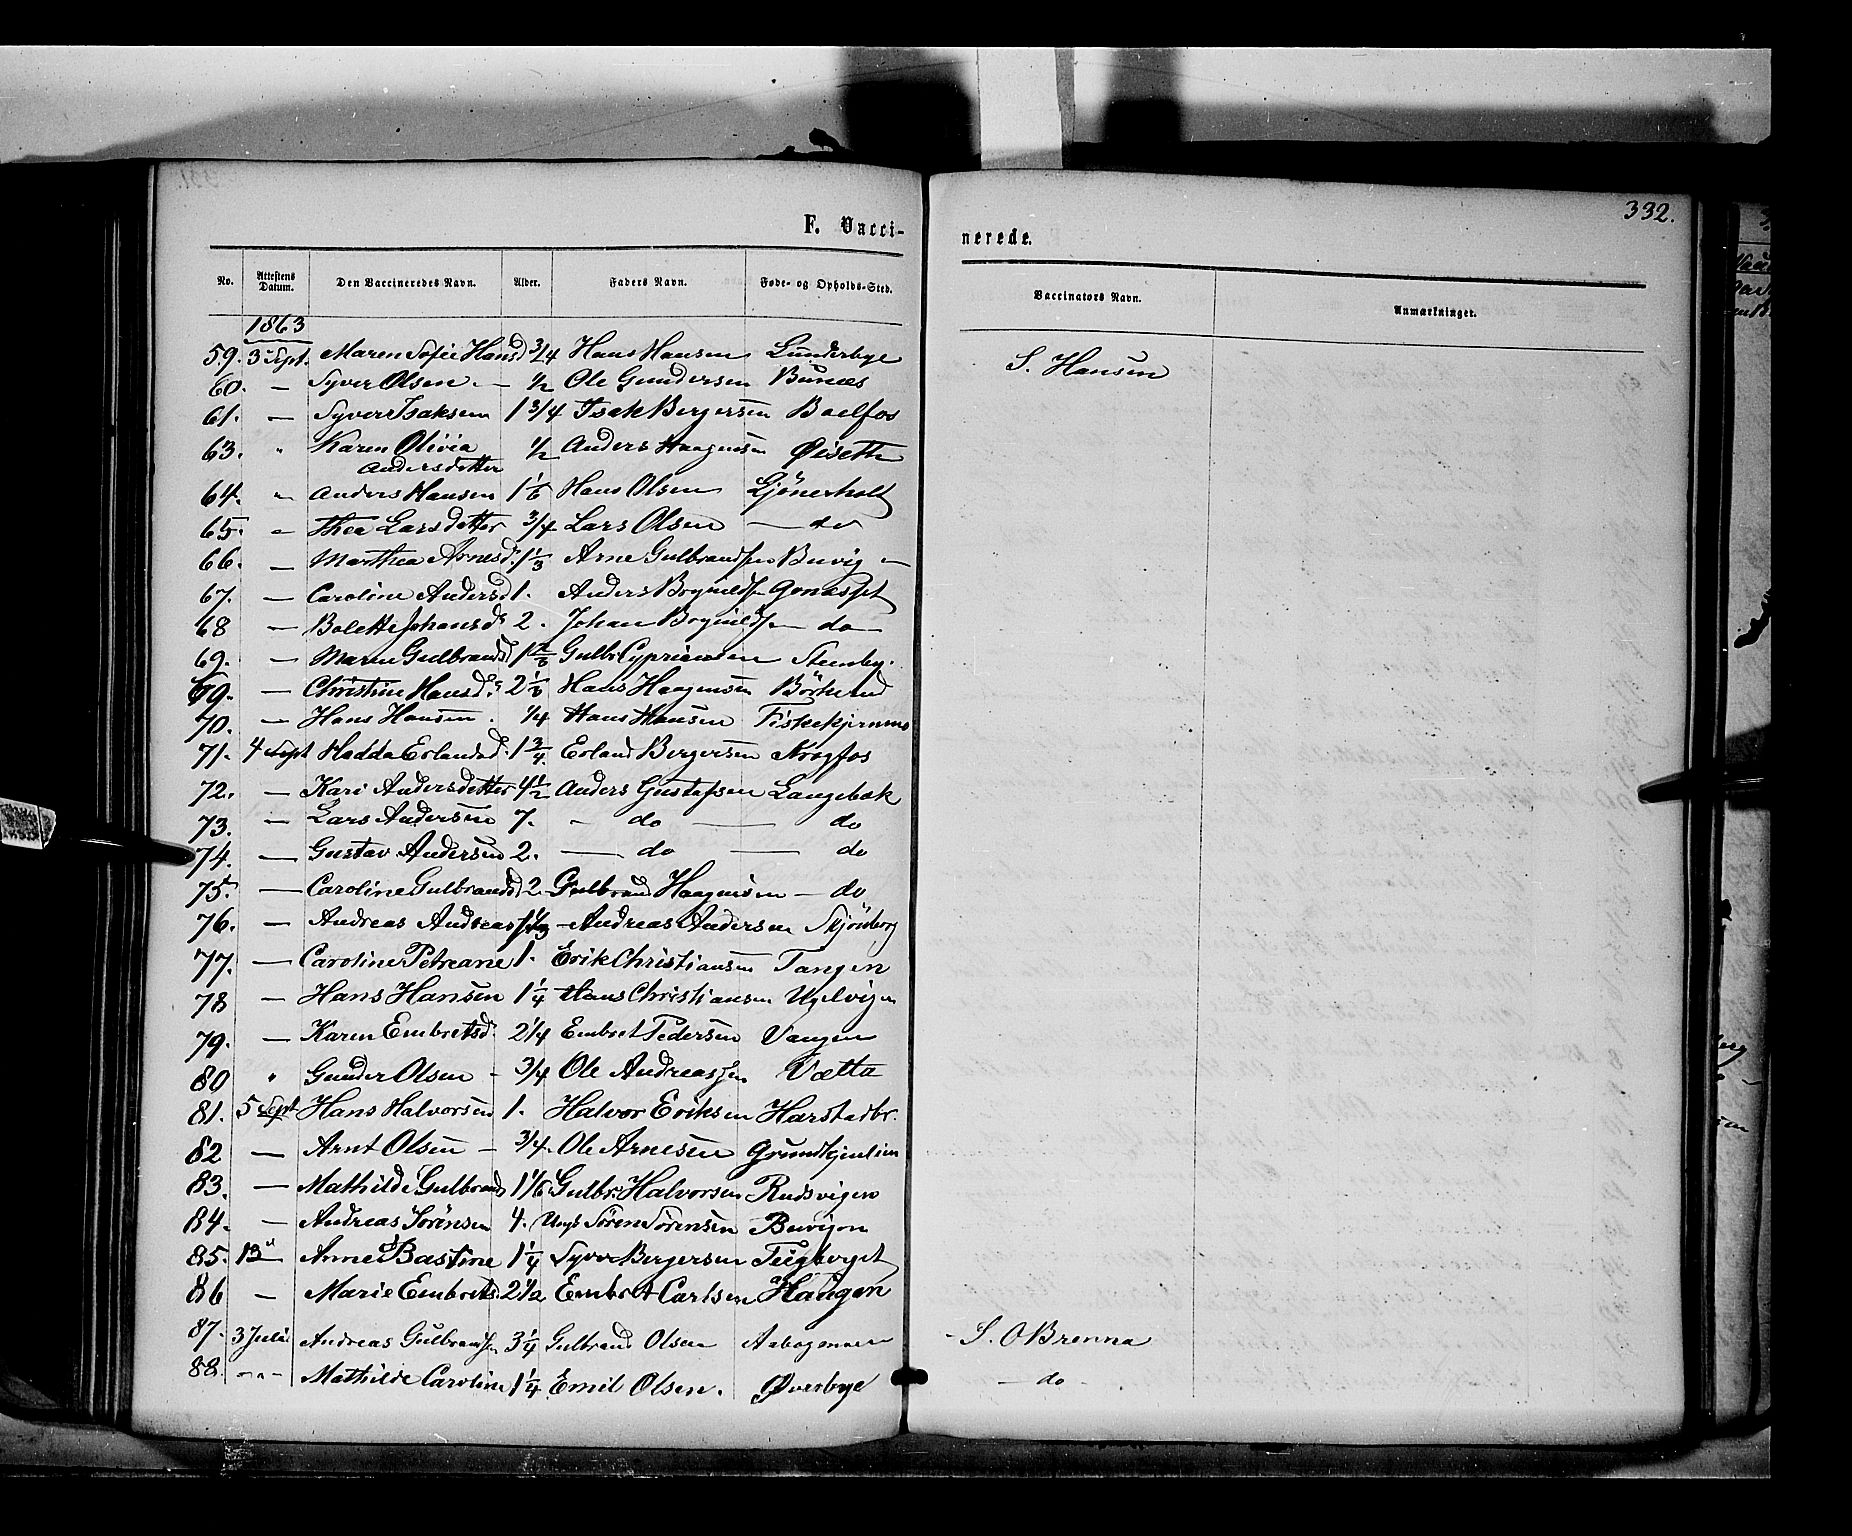 332.
F. Vacci-
nerede.
No. Attestens Datum. Den Vaccineredes Navn. Alder. Faders Navn. Føde- og Opholds-Sted. Vaccinators Navn. Anmærkninger.
1863
59. 3 Sept. Maren Sofie Hansd 3/4 Hans Hansen Lunderbye S. Hansen
60. — Syver Olsen — 1/2 Ole Gundersen Bunæs
61. — Syver Isaksen 1 3/4 Isak Bergersen Boelfos
63. " Karen Olivia 1/2 Anders Haagensen Øisette
Andersdatter
64. " Anders Hansen 1 1/6 Hans Olsen Gjönerholt
65. " Thea Larsdatter 3/4 Lars Olsen — do
66. — Marthea Arnesd. 1 1/3 Arne Gulbrandsen Buvig —
67. — Caroline Andersd 1. Anders
68 — Bolette Johansd. 2. Johan — do —
69. — Maren Gulbrandsd 1 Gulbr. Cypriansen Steenby.
69. — Christine Hansd. 2 1/6 Hans Haagensen
70. — Hans Hansen. 1/4 Hans Hansen
71. 4 Sept Hadda Erlandsd. 1 3/4 Erland Bergersen Krogfos
72. — Kari Andersdatter 4 1/2 Anders Gustafsen Langebæk
73. — Lars Andersen 7. — do — do
74. — Gustav Andersen 2. — do — do
75. — Caroline Gulbrandsd 2 Gulbrand Haagensen — do
76. — Andreas Andreassen 1 1/3 Andreas Andersen Skjönberg
77. — Caroline Petreane 1. Erik Christiansen Tangen
78 — Hans Hansen 1 1/4 Hans Christiansen Ugelvigen
79. — Karen Embretsd. 2 1/4 Embret Pedersen Vangen
80 " Gunder Olsen — 3/4 Ole Andreassen Vætta
81. 5 Sept Hans Halvorsen 1. Halvor Eriksen Harstadbr.
82 — Arnt Olsen — 3/4. Ole Arnesen
83. — Mathilde Gulbrands 1 1/6 Gulbr. Halvorsen Rudsvigen
84. — Andreas Sörensen 4. Ungk Sören Sörensen Buvigen
85. 13" Anne Bastine 1 1/4 Syver Bergersen Teigberget
86 — Marie Embretsd. 2 1/2 Embret Carlsen Haugen
87. 3 Juli Andreas Gulbrandsen 3 1/4 Gulbrand Olsen Aabogennæn - S. O Brenna
88. — " — Mathilde Caroline 1 1/4 Emil Olsen. Øverbye — do -